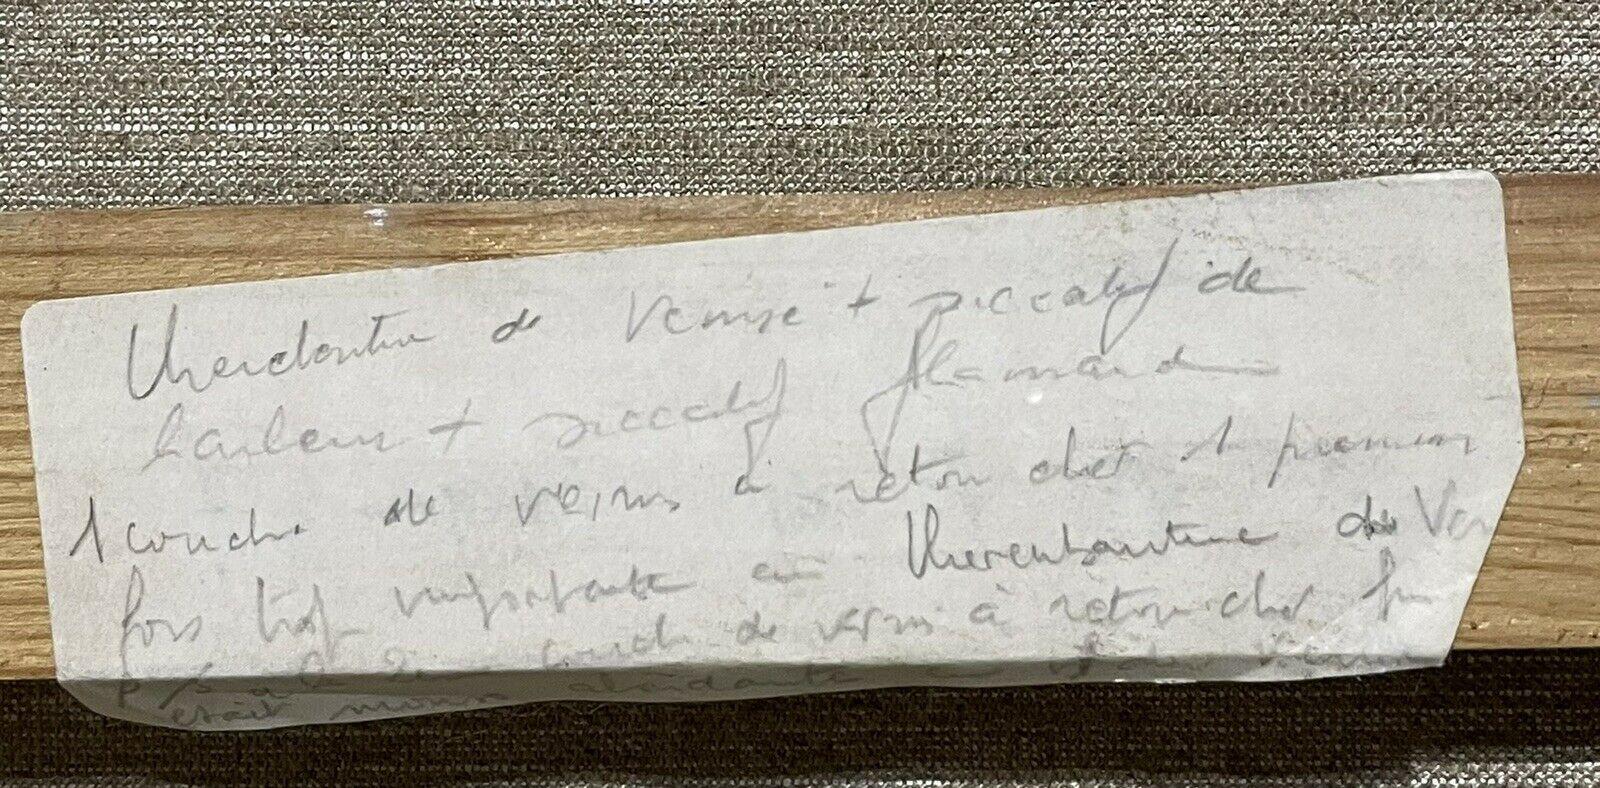 Therebentine de Venise + siccatif de
harlem + siccatif flamand
1 couche de vernis à retoucher 1 premier
fois trop importante en Therenbantine de Ven
la 2 couche de vernis à retoucher
était moins abondante